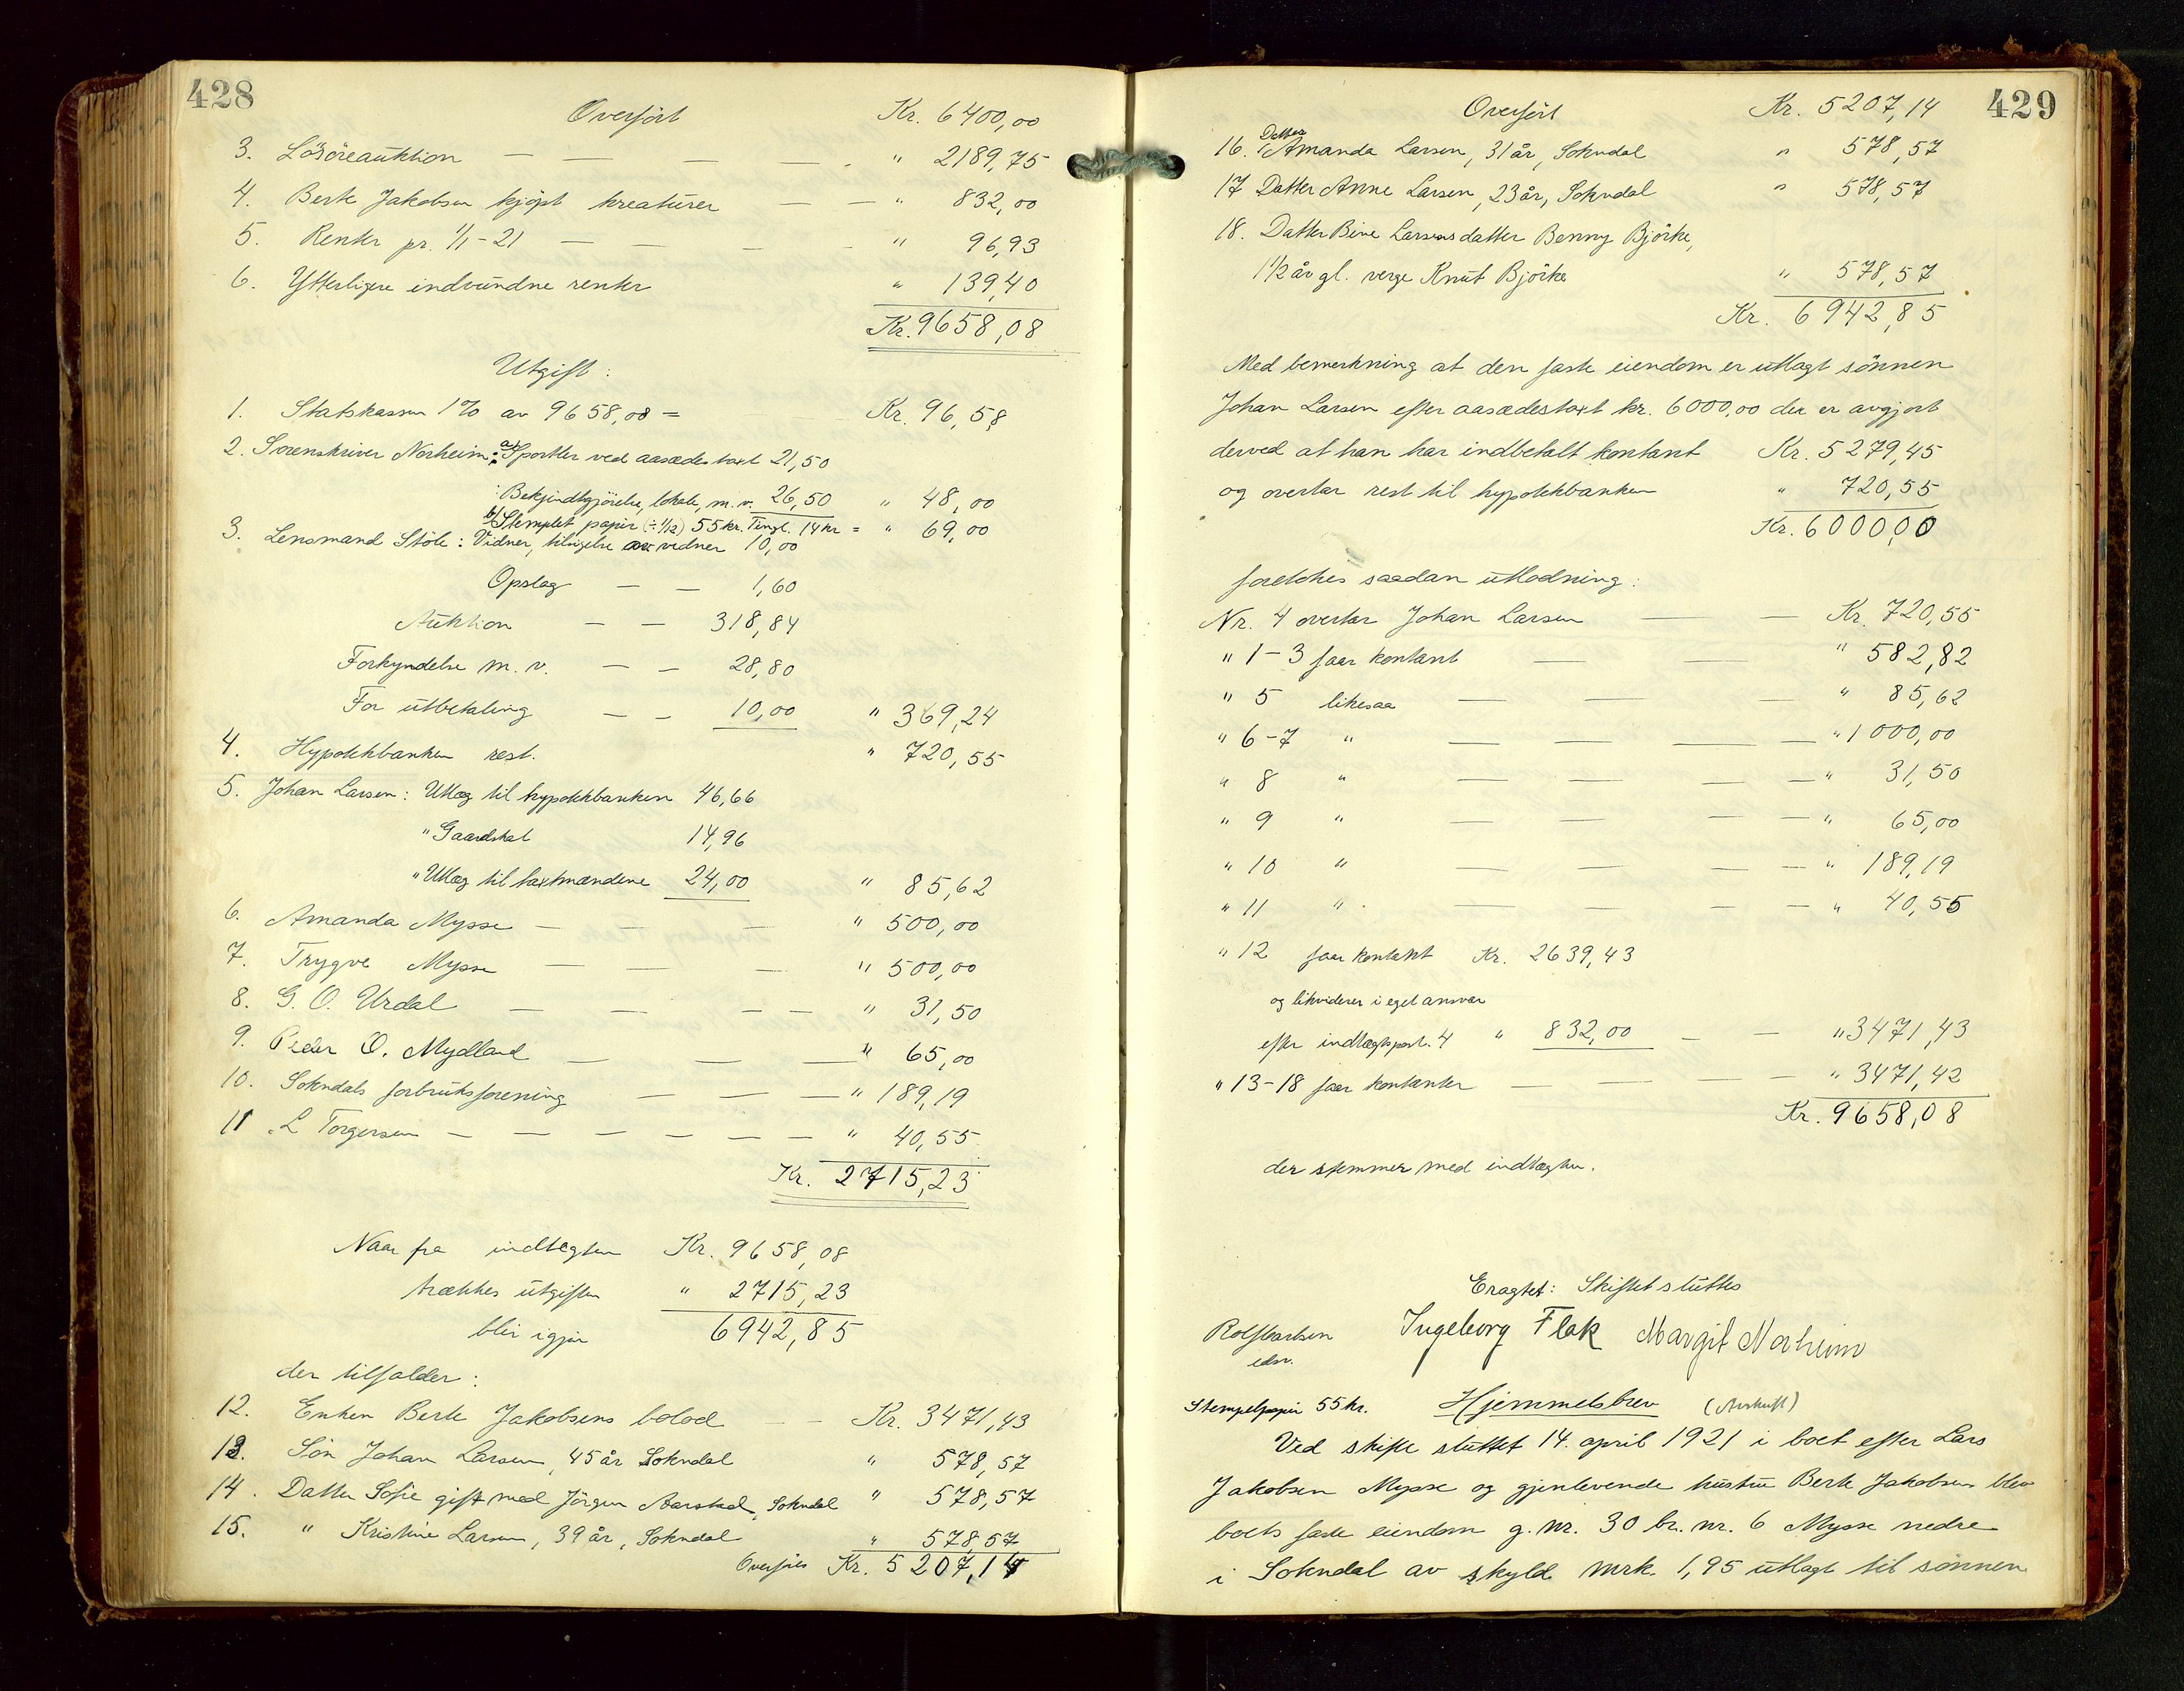 428
Overført Kr. 6400,00
3. Løsøreauktion — — — — " 2189,75
4. Berte Jakobsen kjøpt kreaturer — — " 832,00
5. Renter pr. 1/1-21 — — — — " 96,93
6. Ytterligere indvundne renter " 139,40
Kr. 9658,08
Utgift:
1. Statskassen 1% av 9658,08 = Kr. 96,58
2. Sorenskriver Norheim: a) Sportler ved aasædestaxt 21,50
: Bekjendtgjörelse, lokale, m. v. 26,50 " 48,00
b) Stemplet papir (÷ 1/12) 55 kr. Tingl. 14 kr = " 69,00
3. Lensmand Stöle: Vidner, tilsigelse av vidner 10,00
Opslag — — 1,60
Auktion — — 318,84
Forkyndelse m. v. — — 28,80
For utbetaling — — 10,00 " 369,24
4. Hypotekbanken rest. " 720,55
5. Johan Larsen: Utlæg til hypotekbanken 46,66
" Gaardskat 14,96
" Utlæg til taxtmændene 24,00 " 85,62
6. Amanda Mysse — — — " 500,00
7. Trygve Mysse — — — " 500,00
8. G. O. Urdal — — — — " 31,50
9. Peder O. Mydland — — — " 65,00
10. Sokndals forbruksforening — — — " 189,19
11 L Torgersen — — — — — — " 40,55
Kr. 2715,23
Naar fra indtægten Kr. 9658,08
trækkes utgiften " 2715,23
blir igjen 6942,85
der tilfalder:
12. Enken Berte Jakobsens bolod — — Kr. 3471,43
13. Sön Johan Larsen, 45 år Sokndal " 578,57
14. Datter Sofie gift med Jörgen Aarstad, Sokndal " 578,57
15. " Kristine Larsen, 39 år, Sokndal " 578,57
Overføres Kr. 5207,14
429
Overført Kr. 5207,14
16. Datter Amanda Larsen, 31 år, Sokndal " 578,57
17 Datter Anne Larsen, 23 år, Sokndal " 578,57
18. Datter Bine Larsensdatter Benny Björke,
1 1/2 år gl. verge Knut Björke " 578,57
Kr. 6942,85
Med bemerkning at den faste eiendom er utlagt sönnen
Johan Larsen efter aasædestaxt kr. 6000,00 der er avgjort
derved at han har indbetalt kontant Kr. 5279,45
og overtar rest til hypotekbanken " 720,55
Kr. 6000,00
foretokes saadan utlodning:
Nr. 4 overtar Johan Larsen — — Kr. 720,55
" 1-3 faar kontant — — " 582,82
" 5 likesaa — — — " 85,62
" 6-7 " — — — — " 1000,00
" 8 " — — — — " 31,50
" 9 " — — — — " 65,00
" 10 " — — — — " 189,19
" 11 " — — — — " 40,55
" 12 faar kontant Kr. 2639,43
og likviderer i eget ansvar
efter indtægtspost. 4 " 832,00 — — " 3471,43
" 13-18 faar kontanter — — — " 3471,42
Kr. 9658,08
der stemmer med indtægten.
Eragtet: Skiftet sluttes
Ingeborg Flak Margit Norheim
edsv.
Stempelpapir 55 kr. Hjemmelsbrev (Avskrift)
Ved skifte sluttet 14. april 1921 i boet efter Lars
Jakobsen Mysse og gjenlevende hustru Berte Jakobsen blev
boets faste eiendom g. nr. 30 br. nr. 6 Mysse nedre
i Sokndal av skyld mrk. 1,95 utlagt til sönnen